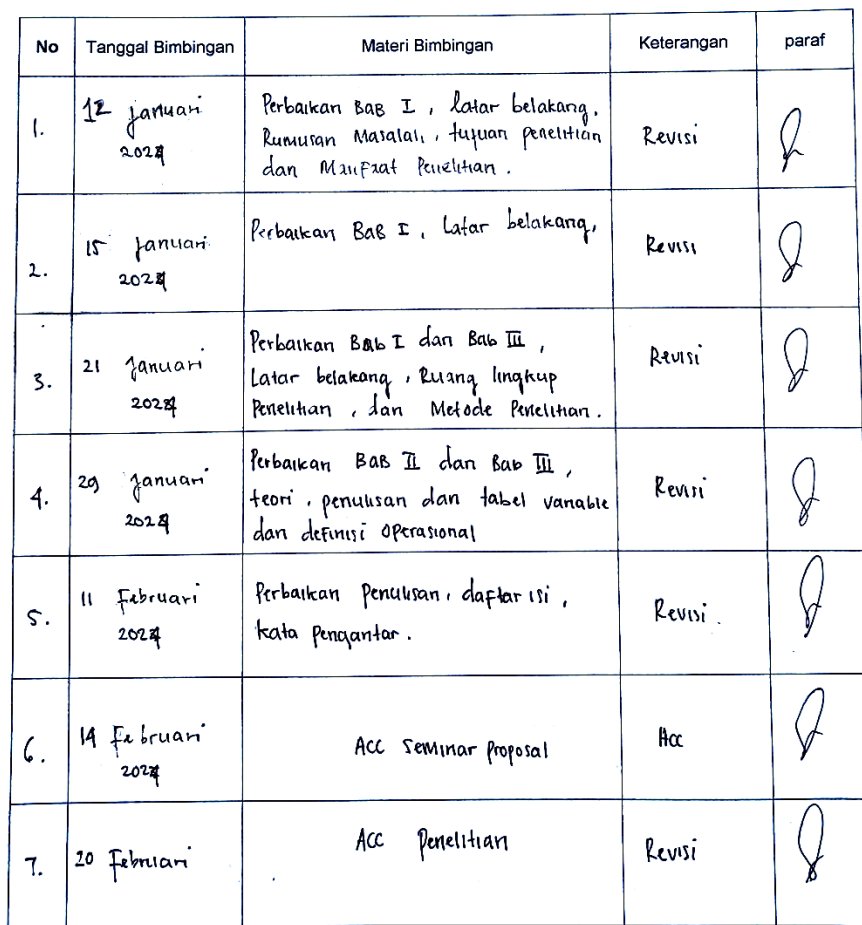 No Tanggal Bimbingan Materi Bimbingan Keterangan paraf
1. 12 januari 2024 Perbaikan BAB I, latar belakang, Revisi
Rumusan Masalah, tujuan penelitian
dan Manfaat Penelitian.
2. 15 januari 2024 Perbaikan BAB I, Latar belakang, Revisi
3. 21 Januari 2024 Perbaikan Bab I dan Bab III, Revisi
Latar belakang, Ruang lingkup
Penelitian, dan Metode Penelitian.
4. 29 Januari 2024 Perbaikan BAB II dan Bab III, Revisi
teori, penulisan dan tabel variable
dan definisi operasional
5. 11 Februari 2024 Perbaikan Penulisan, daftar isi, Revisi.
kata pengantar.
6. 14 Februari 2024 ACC Seminar Proposal Acc
7. 20 Februari ACC Penelitian Revisi